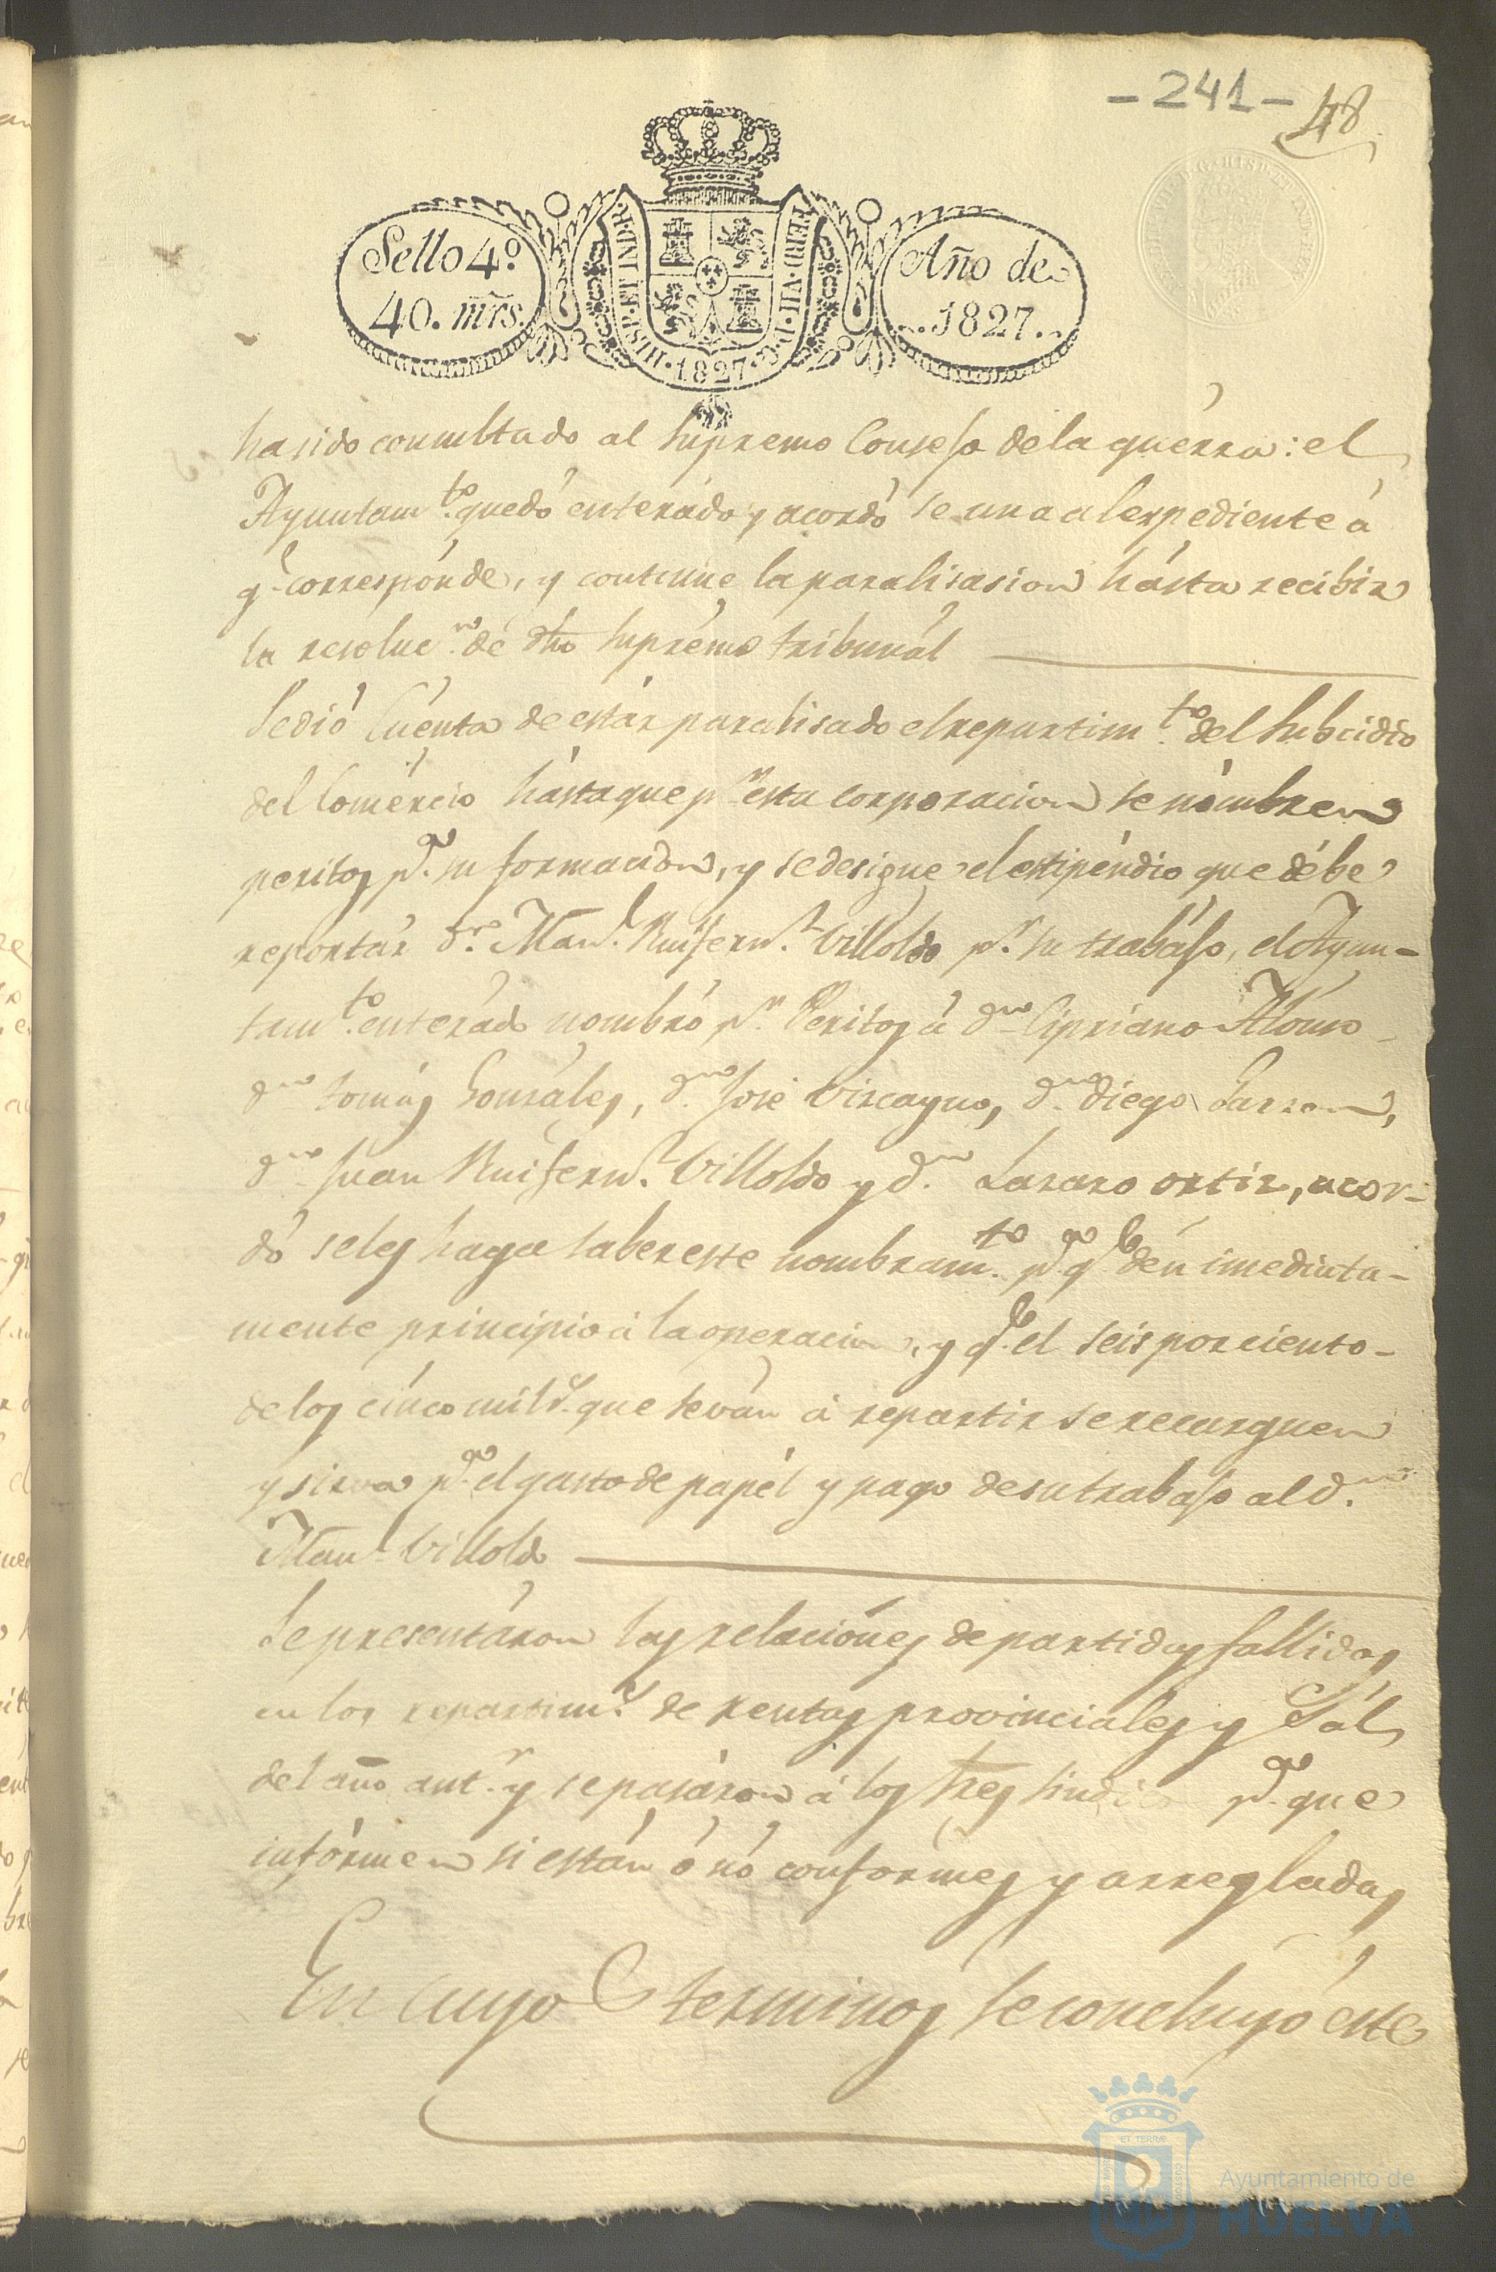 - 241 - 48
Sello 4º.
40. mrs.
HISP. ET IND. R.
FERD. VII. D. G.
· 1827 ·
Año de
1827.
ha sido consultado al supremo Consejo de la guerra: el
Ayuntamto. quedó enterado y acordó se una al expediente à
q.e corresponde, y continue la paralisasion hásta recibir
la resoluc.n de dho supremo tribunál
Se dió Cuenta de estár paralisado el repartimto. del subcidio
del Comércio hásta que pr. esta corporacion se nómbren
peritos pa. su formacion, y se desigue el estipéndio que débe
reportár Dn. Manl. Ruifernz. Villoldo pr. su trabájo, el Ayun-
tamto. enterádo nombró pr. Peritos à dn. Cipriano Alonso
dn. tomás Gonsáles, dn. José Viscayno, dn. diego Garzon,
dn. Juan Ruifernz. Villoldo y dn. Lazaro ortiz, acor-
dó se les haga saber este nombramto. pa. qe. dén imediata-
mente principio à la operacion, y qe. el seis por ciento-
de los cinco mil rs. que se ván à repartir se recarguen
y sirva pa. el gasto de papél y pago de su trabajo al dn.
Manl. Villoldo
Se presentáron las relaciónes de partidas fallidas
en los repartims. de rentas provinciales y Sál
del año antr. y se pasáron à los tres sindicos pa. que
infórmen si están ó nó confórmes y arregladas
En cuyos terminos se concluyó este
ET TERRÆ
Ayuntamiento de
HUELVA